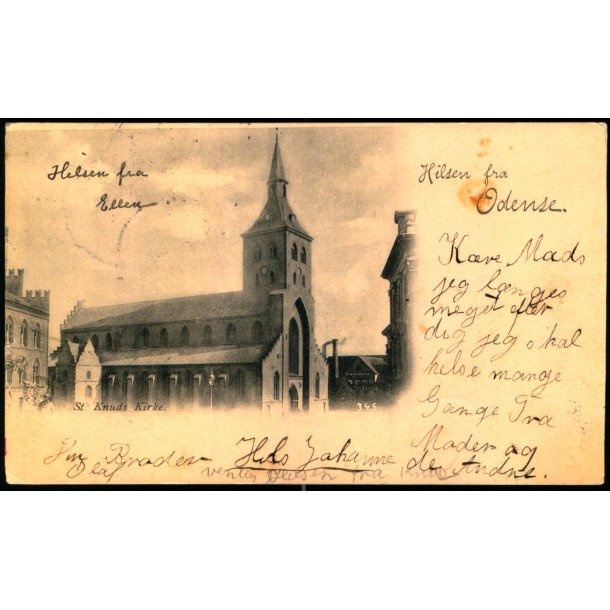 Hilsen fra
Ellen
Hilsen fra
Odense.
Kære Mads
jeg længes
meget efter
dig jeg skal
hilse mange
Gange Fra
Moder og
de Andre.
St. Knuds Kirke.
345
Din Broder
Olaf
Hils Johanne
venlig Hilsen fra